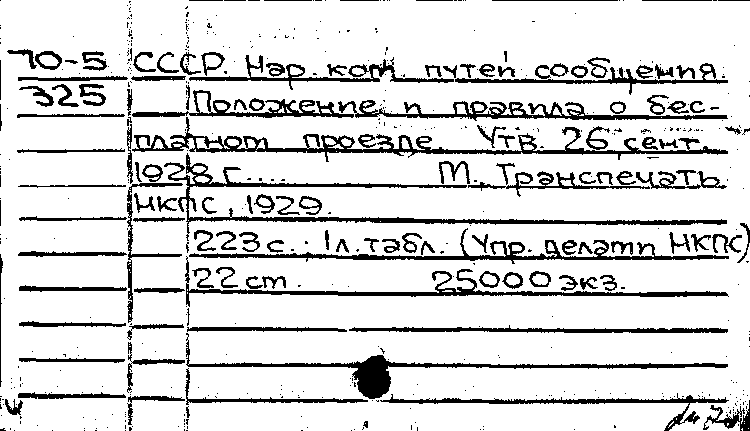 70-5 СССР. Нар. ком. путей сообщения.
325 Положение и правила о бес-
платном проезде. Утв. 26 сент.
1928 г.... М., Транспечать
НКПС, 1929.
223 с.; 1 л. табл. (Упр. делами НКПС)
22 ст. 25000 экз.